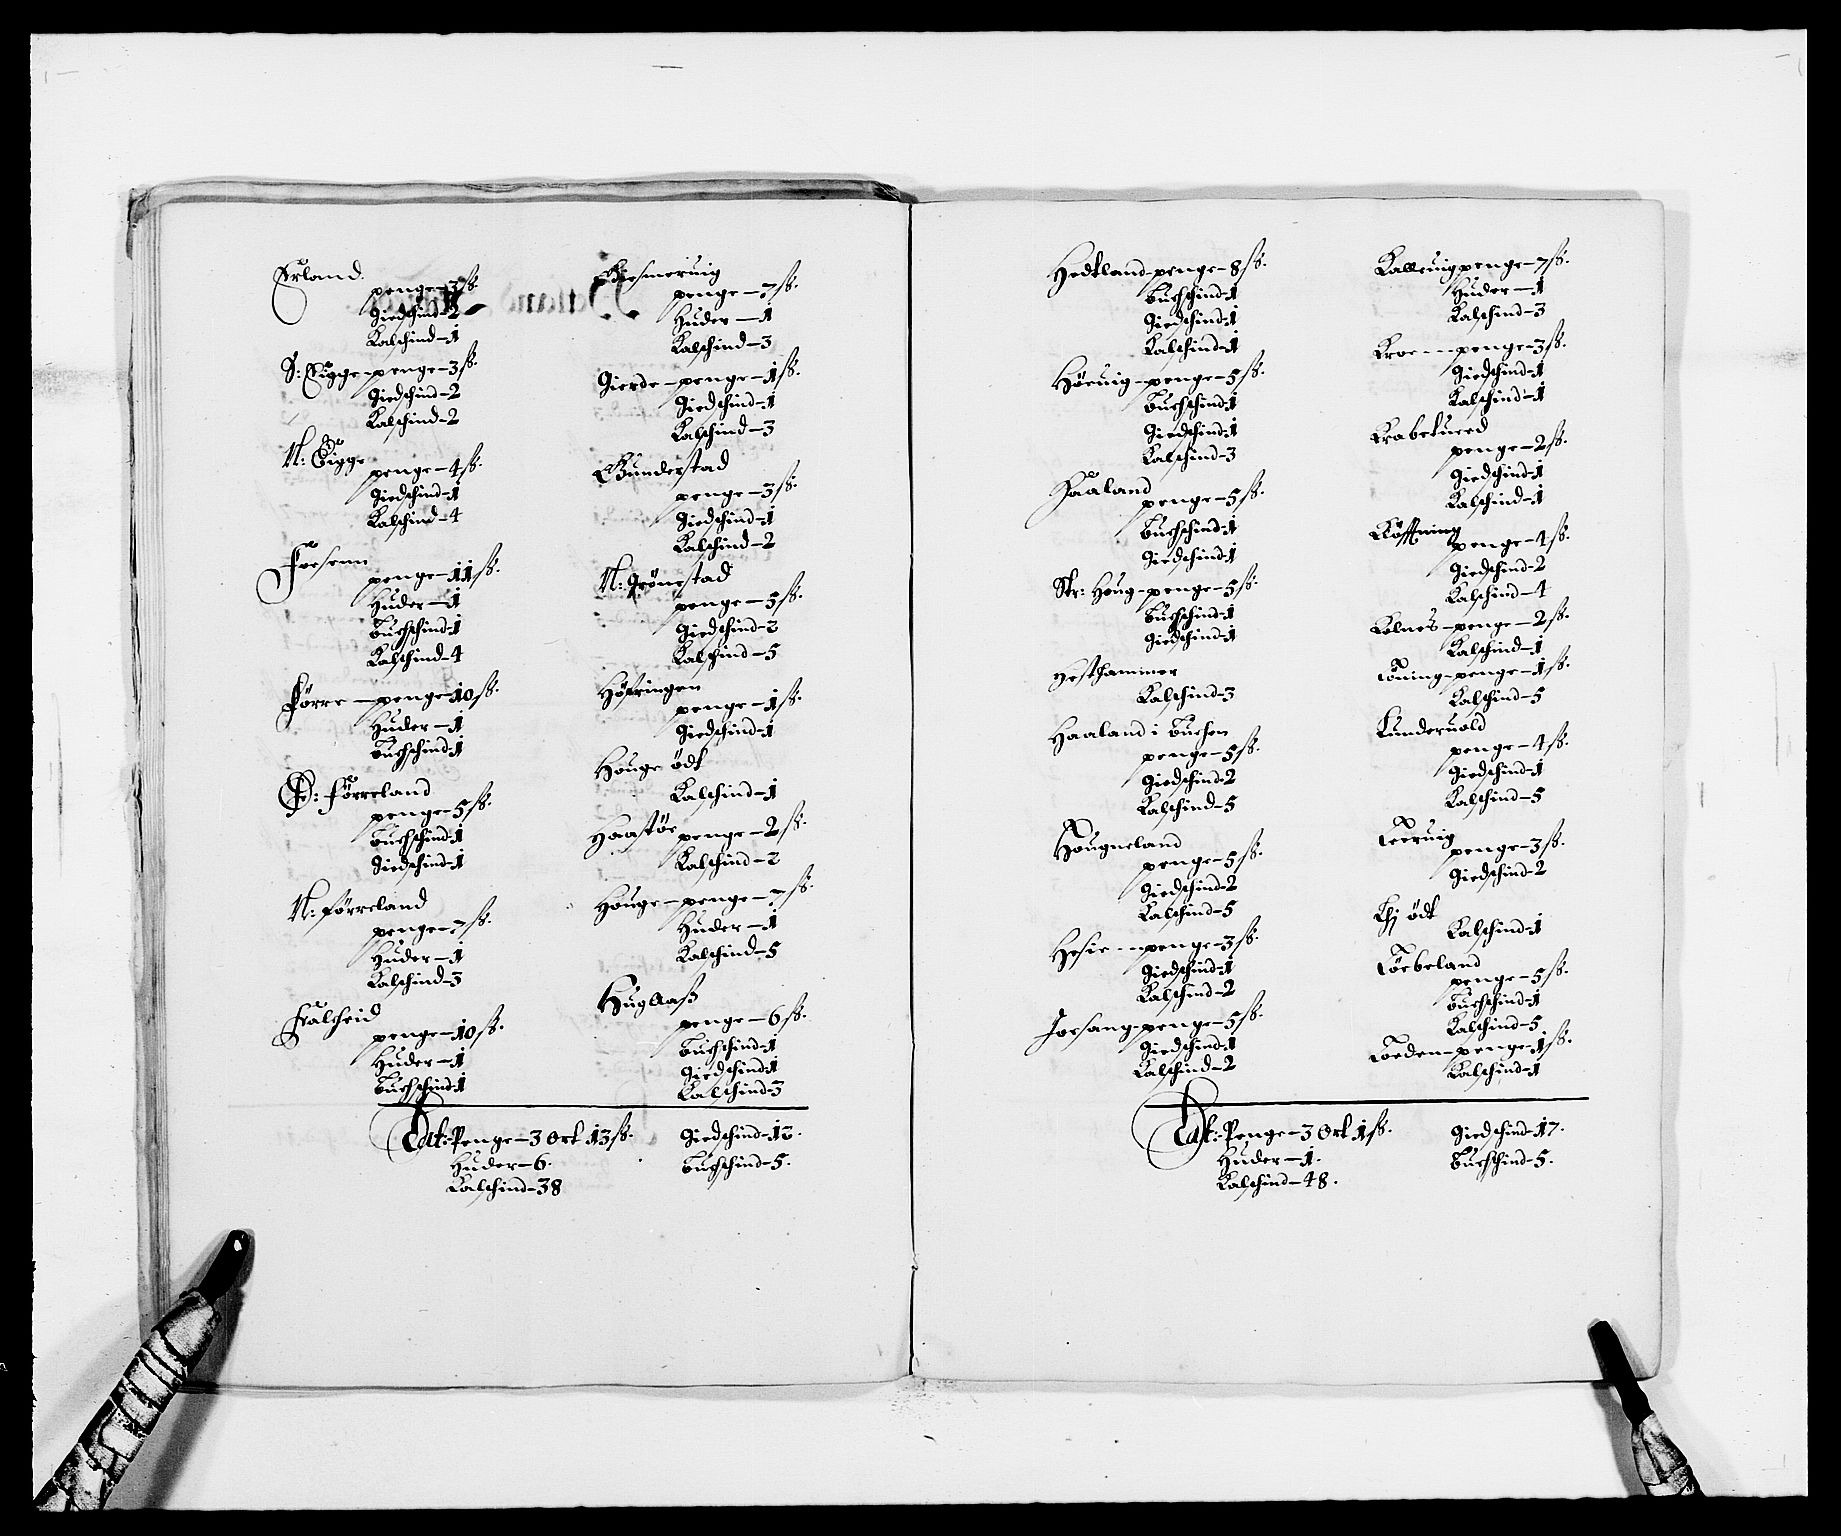 Erland.
penge-3 ß.
Giedschind-2
Kalschind-1
S: Eigge-penge-3 ß.
Giedschind-2
Kalschind-2
N: Eigge
penge-4 ß.
Giedschind-1
Kalschind-4
Foesenn
penge-11 ß.
Huder-1
Buchschind-1
Kalschind-4
Førre-penge-10 ß.
Huder-1
Buchschind-1
Ø: Førreland
penge-5 ß.
Buchschind-1
Giedschind-1
N: Førreland
penge-7 ß.
Huder-1
Kalschind-3
Falcheid
penge-10 ß.
Huder-1
Buchschind-1
Giesmeruig
penge-7 ß.
Huder-1
Kalschind-3
Gierde-penge-1 ß.
Giedschind-1
Kalschind-3
Gunderstad
penge-3 ß.
Giedschind-1
Kalschind-2
N: Grønestad
penge-5 ß.
Giedschind-2
Kalschind-5
Høfringen
penge-1 ß.
Giedschind-1
Houge ødt
Kalschind-1
Haastøe penge-2 ß.
Kalschind-2
Houge-penge-7 ß.
Huder-1
Kalschind-5
Huglaaß
penge-6 ß.
Buchschind-1
Giedschind-1
Kalschind-3
Lat: Penge-3 Ort 13 ß.
Huder-6.
Kalschind-38
Giedschind-13.
Buchschind-5.
Hedtland-penge-8 ß.
Buchschind-1
Giedschind-1
Kalschind-1
Høeuig-penge-5 ß.
Buchschind-1
Giedschind-1
Kalschind-3
Haaland
penge-5 ß.
Buchschind-1
Giedschind-1
Str: Houg-penge-5 ß.
Buchschind-1
Giedschind-1
Hesthammer
Kalschind-3
Haaland i Buchen
penge-5 ß.
Giedschind-2
Kalschind-5
Hougneland
penge-5 ß.
Giedschind-2
Kalschind-5
Hesie-penge-3 ß.
Giedschind-1
Kalschind-2
Joesang-penge-5 ß.
Giedschind-1
Kalschind-2
Kalleuig penge-7 ß.
Huder-1
Kalschind-3
Kroe-penge-3 ß.
Giedschind-1
Kalschind-1
Krabetueed
penge-2 ß.
Giedschind-1
Kalschind-1
Køffning
penge-4 ß.
Giedschind-2
Kalschind-4
Kolnes-penge-2 ß.
Kalschind-1
Løning-penge-1 ß.
Kalschind-5
Lunderuold
penge-4 ß.
Giedschind-1
Kalschind-5
Leeruig
penge-3 ß.
Giedschind-2
Lhj ødt
Kalschind-1
Løebeland
penge-5 ß.
Buchschind-1
Kalschind-5
Loeden-penge-1 ß.
Kalschind-1
Lat: Penge-3 Ort 1 ß.
Huder-1.
Kalschind-48.
Giedschind-17.
Buchschind-5.